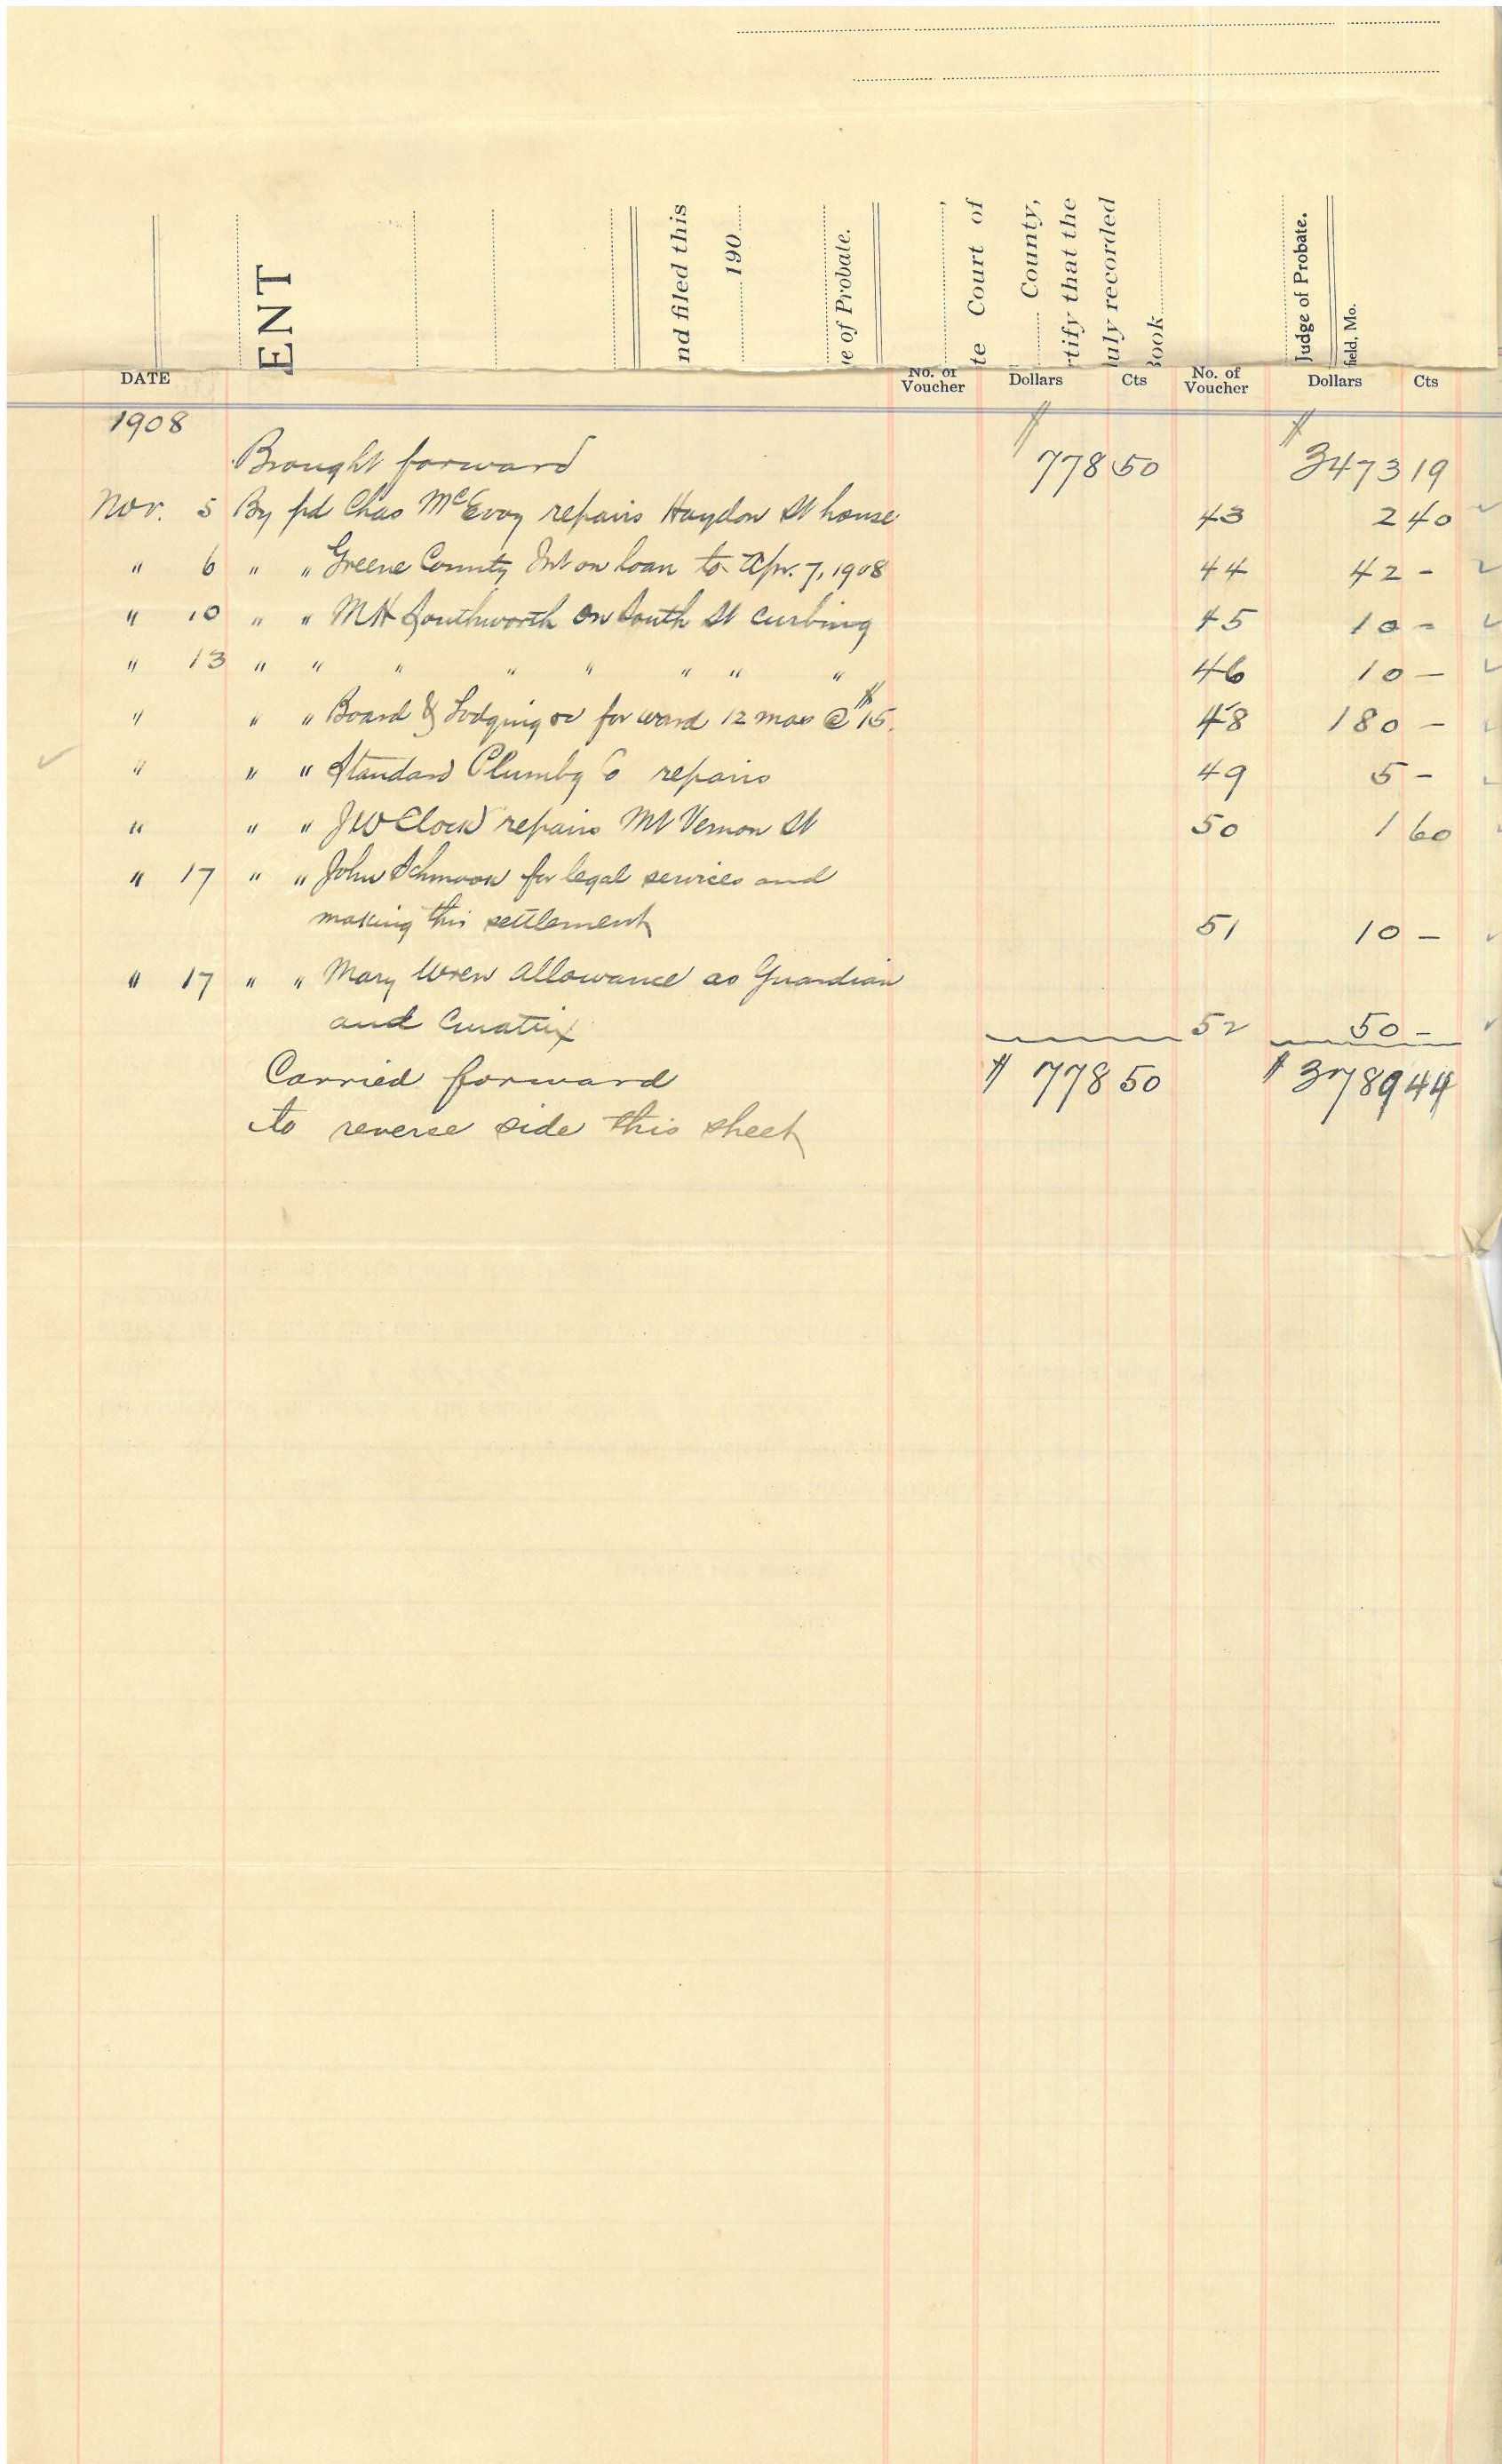 ENT
nd filed this
190
e of Probate.
te Court of
County,
rtify that the
uly recorded
Book
Judge of Probate.
field, Mo.
DATE No. of Voucher Dollars Cts No. of Voucher Dollars Cts
1908
Brought forward $ 778 50 $ 3473 19
Nov. 5 By pd Chas McEvoy repairs Haydon St house 43 2 40
" 6 " " Greene County Int on loan to Apr. 7, 1908 44 42 -
" 10 " " MH Southworth on South St curbing 45 10 -
" 13 " " " " " " " " 46 10 -
" " " Board & Lodging for ward 12 mos @ $15. 48 180 -
" " " Standard Plumbg Co repairs 49 5 -
" " " JW Clock repairs Mt Vernon St 50 1 60
" 17 " " John Schmook for legal services and
making this settlement 51 10 -
" 17 " " Mary Wren allowance as Guardian
and Curatrix 52 50 -
Carried forward $ 778 50 $ 3789 44
to reverse side this sheet